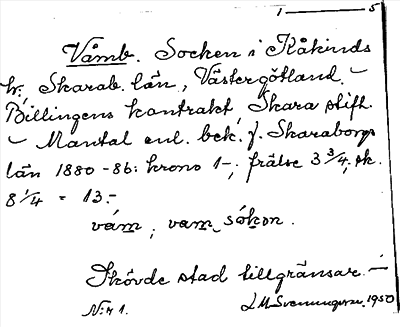 1 — 5
Våmb. Socken i Kåkinds
hd, Skarab. län, Västergötland. –
Billingens kontrakt, Skara stift.
– Mantal enl. bek. f. Skaraborgs
län 1880-86: krono 1-; frälse 3 3/4; sk.
8 1/4 = 13.-
våm, vam, sókən.
Skövde stad tillgränsar. –
N:r 1. J.M. Svenningsson. 1950